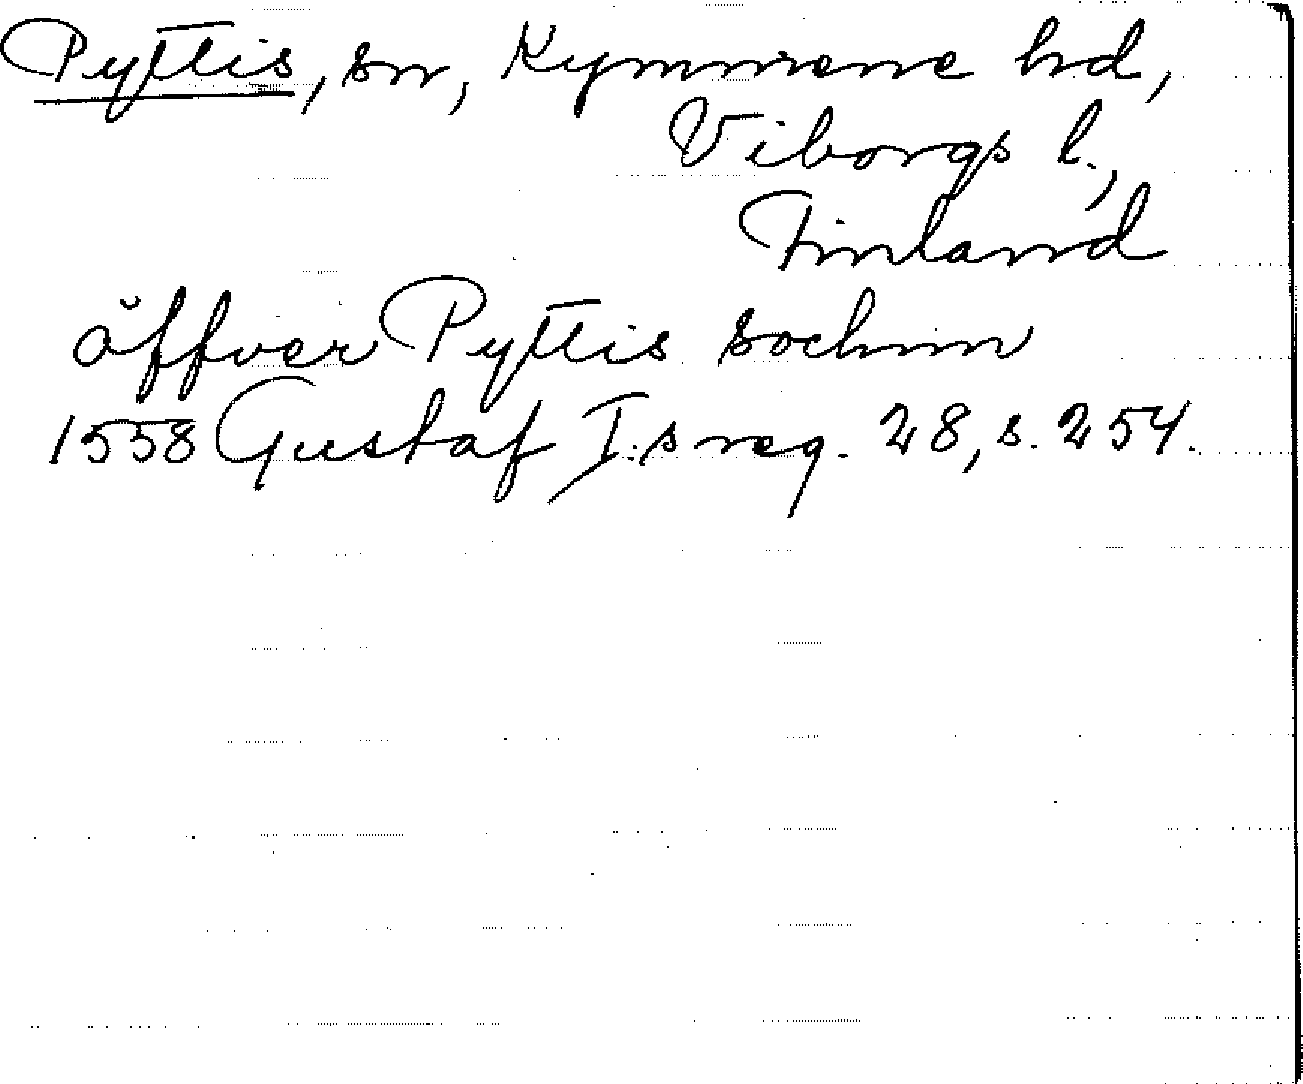 Pyttis, sn, Kymmene hd,
Viborgs l.,
Finland
öffver Pyttis sochnn
1558 Gustaf I:s reg. 28, s. 254.